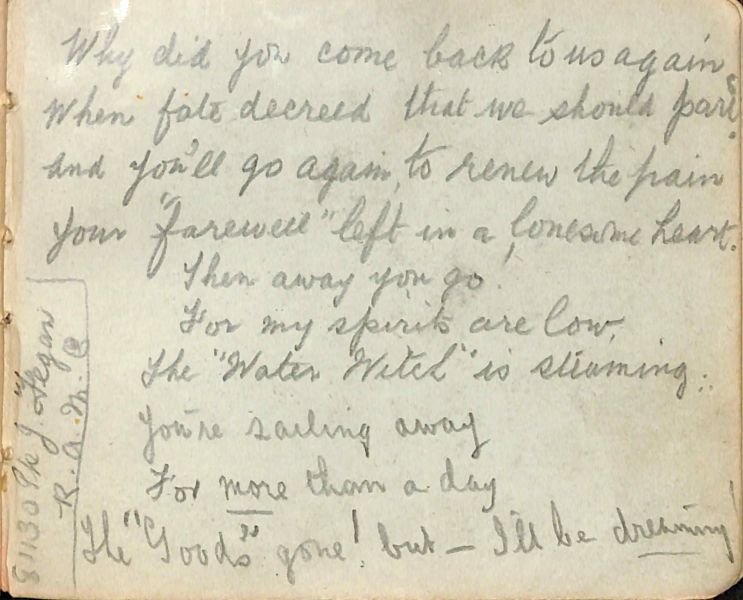 Why did you come back to us again
When fate decreed that we should part?
And you'll go again, to renew the pain
Your "farewell" left in a lonesome heart.
Then away you go!
For my spirits are low,
The "Water Witch" is steaming;
You're sailing away
For more than a day
The "Goods" gone! but — I'll be dreaming!
81130 Pte J. Fegan
R.A.M.C